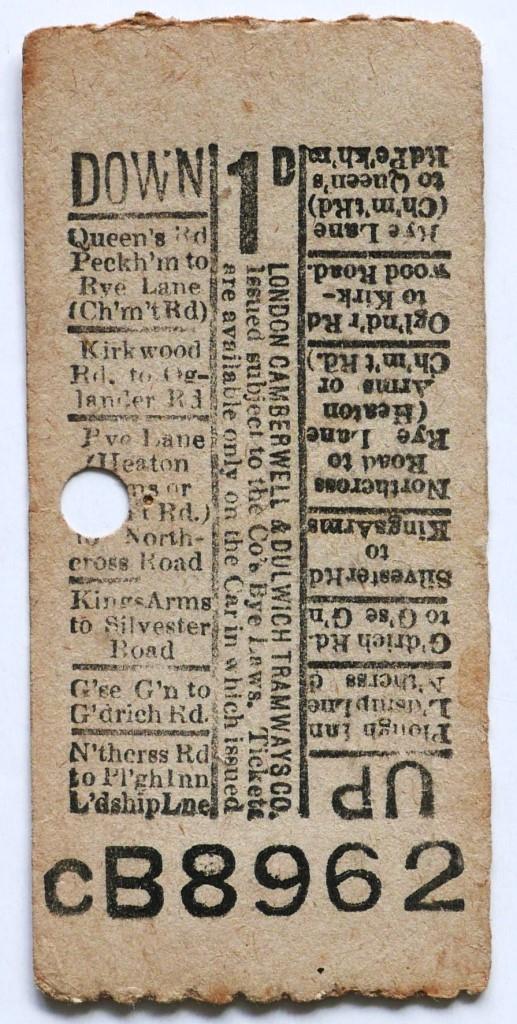 DOWN
Queen's Rd
Peckh'm to
Rye Lane
(Ch'm't Rd)
Kirkwood
Rd. to Og-
lander Rd
Rye Lane
(Heaton
ms or
t Rd.)
to North-
cross Road
Kings Arms
to Silvester
Road
G'se G'n to
G'drich Rd.
N'therss Rd
to Pl'gh Inn
L'dship Lne
1D
LONDON CAMBERWELL & DULWICH TRAMWAYS CO.
Issued subject to the Co's Bye Laws. Tickets
are available only on the Car in which issued
UP
Plough Inn
L'dship Lne
N'therss
G'drich Rd.
to G'se G'n
Silvester Rd
to
Kings Arms
Northcross
Road to
Rye Lane
(Heaton
Arms or
Ch'm't Rd.)
Ogl'nd'r Rd
to Kirk-
wood Road.
Rye Lane
(Ch'm'tRd)
to Queen's
Rd Pe'kh'm
CB8962